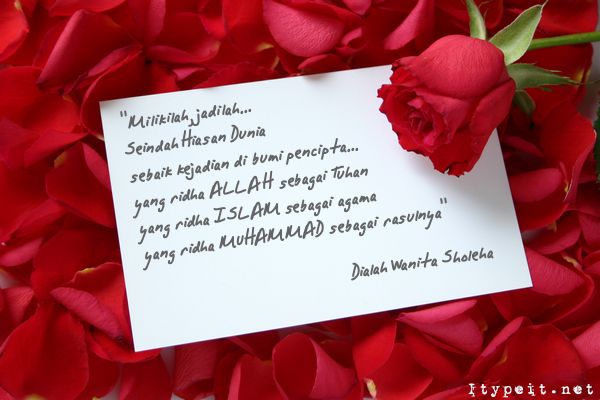 "Milikilah, jadilah...
Seindah Hiasan Dunia
sebaik kejadian di bumi pencipta...
yang ridha ALLAH sebagai Tuhan
yang ridha ISLAM sebagai agama
yang ridha MUHAMMAD sebagai rasulnya"
Dialah Wanita Sholeha
Itypeit.net